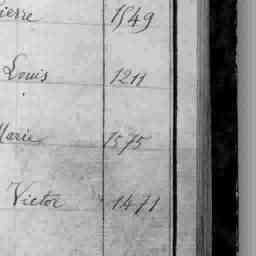 Pierre 1549
Louis 1211
Marie 1575
Victor 1471